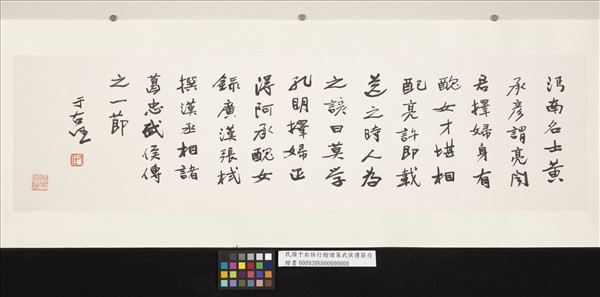 沔南名士黃
承彥謂亮聞
君擇婦身有
醜女才堪相
配亮許即載
送之時人為
之諺曰莫學
孔明擇婦正
得阿承醜女
錄廣漢張栻
撰漢丞相諸
葛忠武侯傳
之一節
于右任
民國于右任行楷諸葛武侯傳節句
000939N000000000